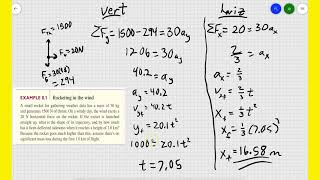 vert
horiz
F_Ty = 1500
F_x = 20N
F_g = 30(9.8)
= 294
ΣF_y = 1500 - 294 = 30a_y
1206 = 30a_y
40.2 = a_y
a_y = 40.2
v_yf = 40.2t
y_f = 20.1t²
1000 = 20.1t²
t = 7.05
ΣF_x = 20 = 30a_x
2/3 = a_x
a_x = 2/3
v_xf = 2/3 t
x_f = 1/3 t²
x_f = 1/3 (7.05)²
x_f = 16.58 m
EXAMPLE 8.1 Rocketing in the wind
A small rocket for gathering weather data has a mass of 30 kg
and generates 1500 N of thrust. On a windy day, the wind exerts a
20 N horizontal force on the rocket. If the rocket is launched
straight up, what is the shape of its trajectory, and by how much
has it been deflected sideways when it reaches a height of 1.0 km?
Because the rocket goes much higher than this, assume there's no
significant mass loss during the first 1.0 km of flight.